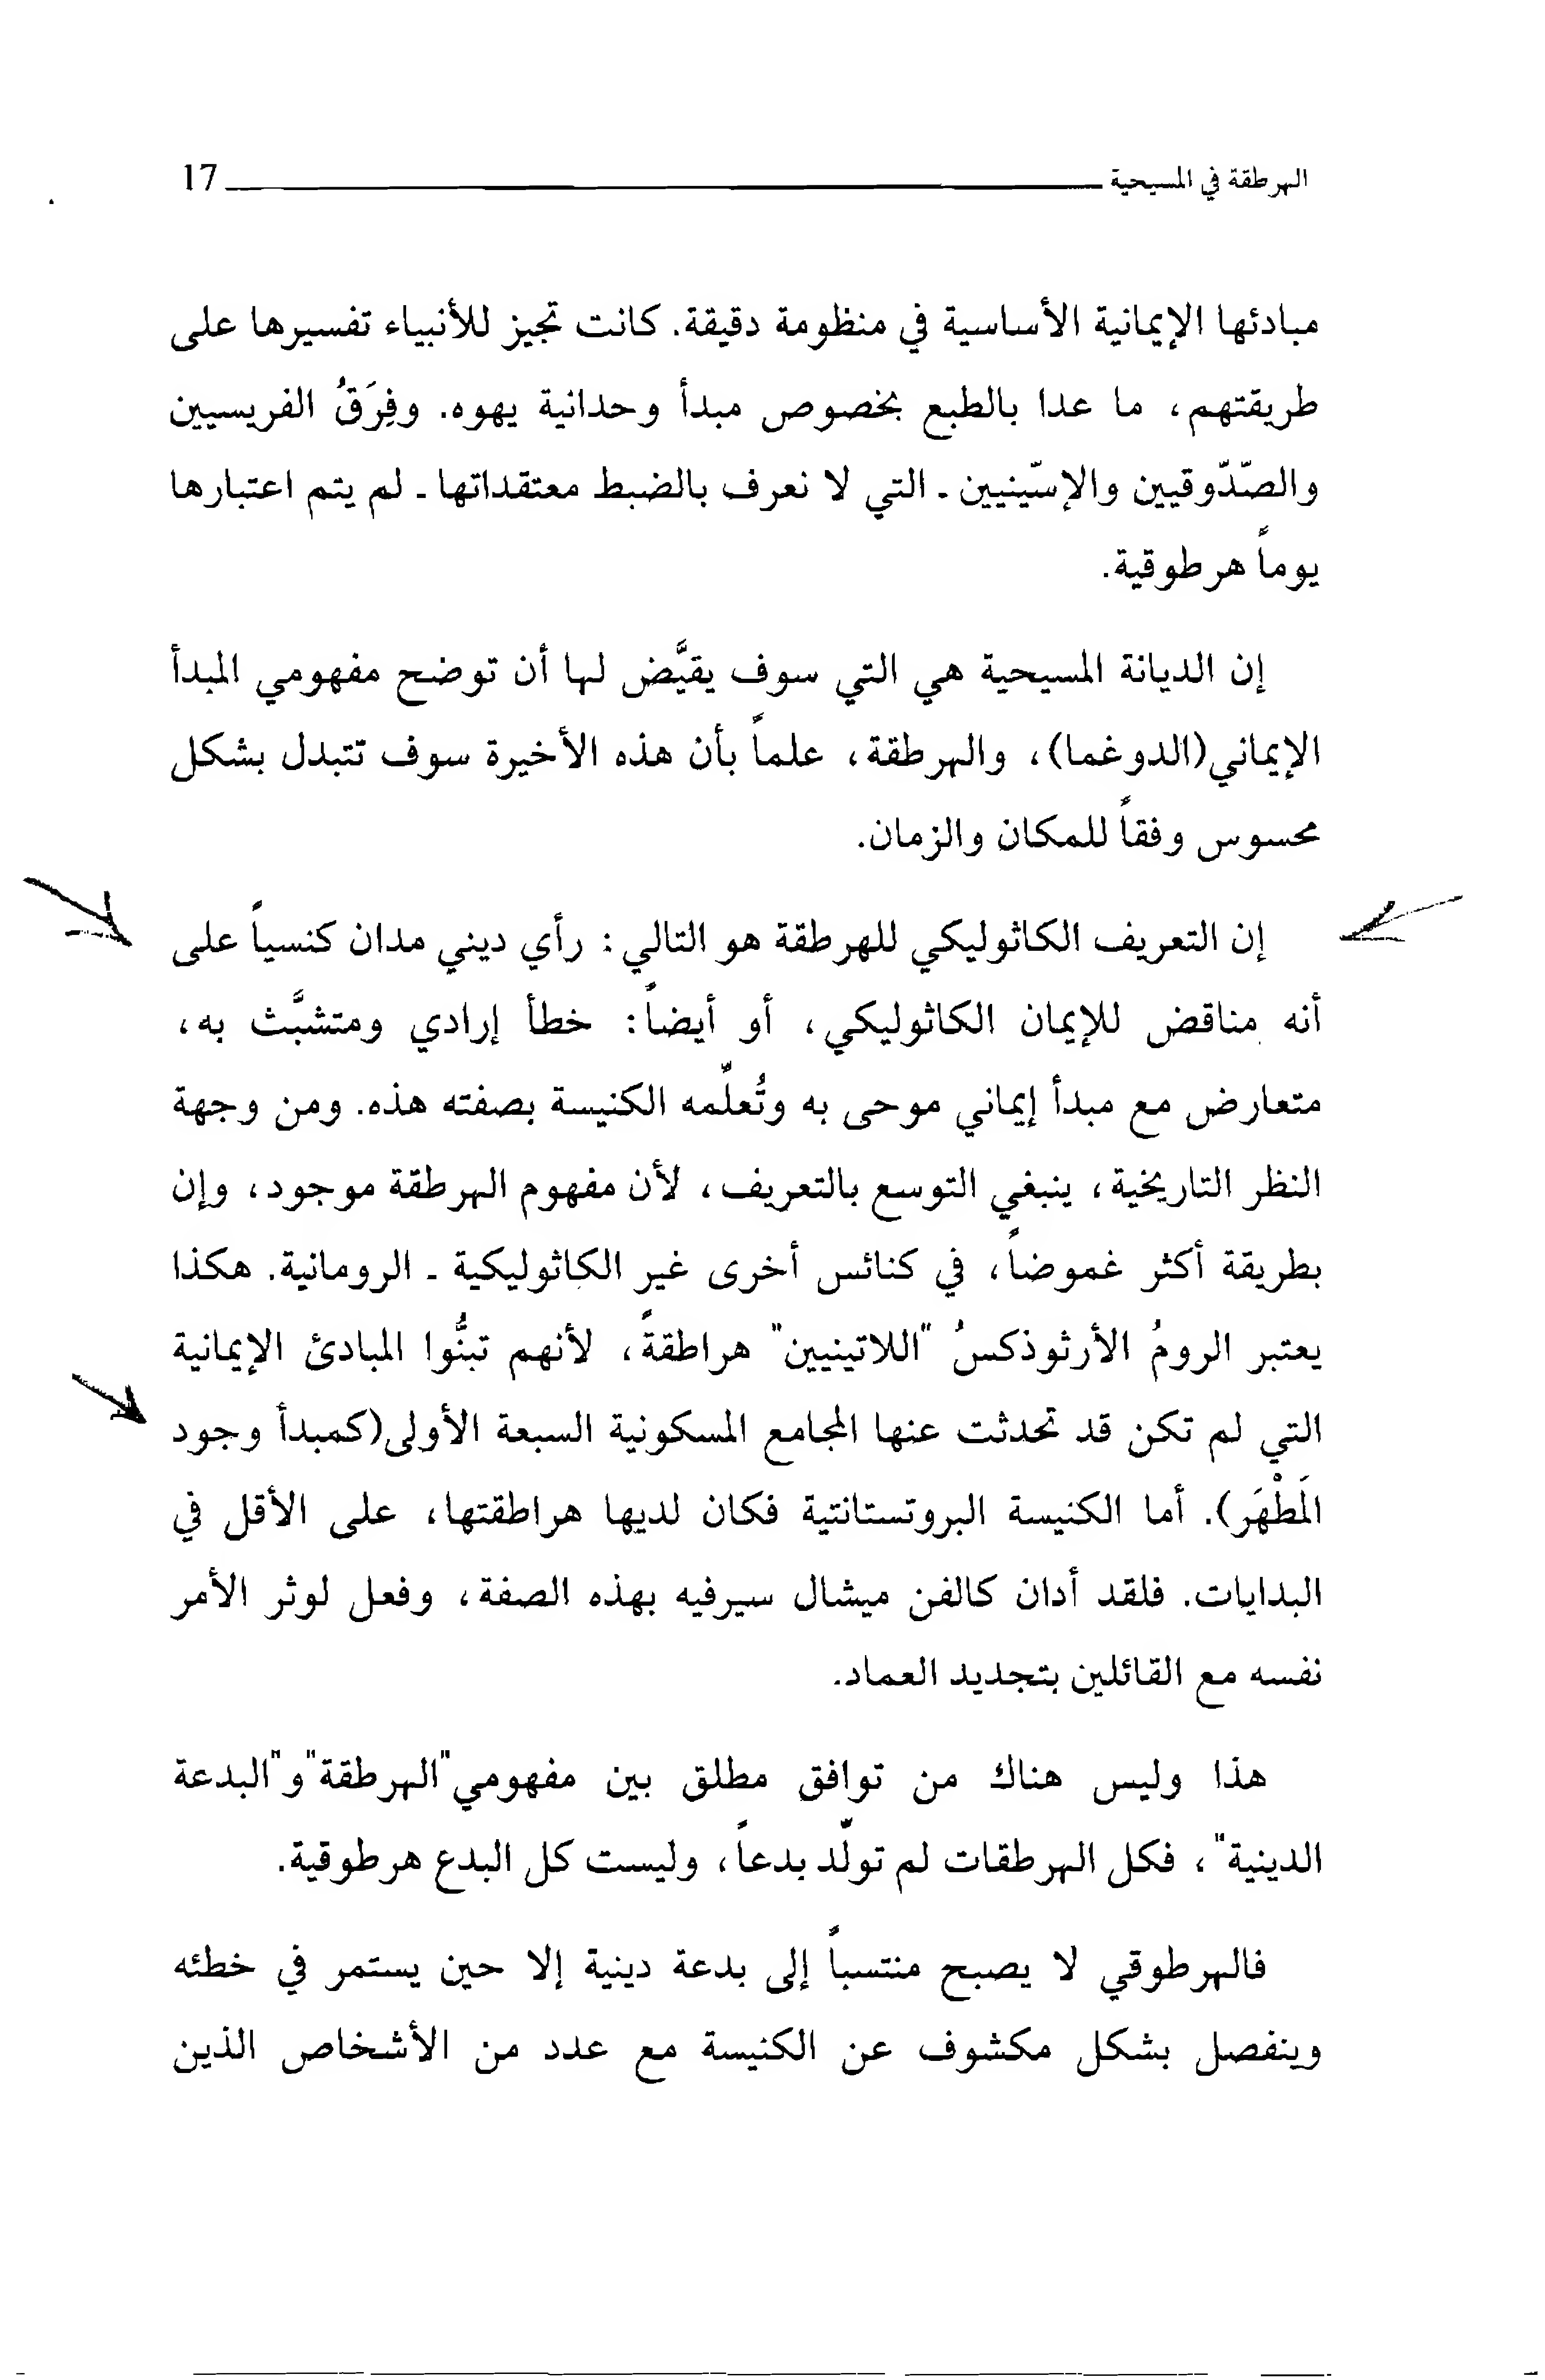 الهرطقة في المسيحية 17
مبادئها الإيمانية الأساسية في منظومة دقيقة. كانت تجيز للأنبياء تفسيرها على
طريقتهم، ما عدا بالطبع بخصوص مبدأ وحدانية يهوه. وفِرَقُ الفريسيين
والصّدّوقيين والإسّينيين - التي لا نعرف بالضبط معتقداتها - لم يتم اعتبارها
يوماً هرطوقية.
إن الديانة المسيحية هي التي سوف يقيَّض لها أن توضح مفهومي المبدأ
الإيماني(الدوغما)، والهرطقة، علماً بأن هذه الأخيرة سوف تتبدل بشكل
محسوس وفقاً للمكان والزمان.
إن التعريف الكاثوليكي للهرطقة هو التالي : رأي ديني مدان كنسياً على
أنه مناقض للإيمان الكاثوليكي، أو أيضاً: خطأ إرادي ومتشبَّث به،
متعارض مع مبدأ إيماني موحى به وتُعلّمه الكنيسة بصفته هذه. ومن وجهة
النظر التاريخية، ينبغي التوسع بالتعريف، لأن مفهوم الهرطقة موجود، وإن
بطريقة أكثر غموضاً، في كنائس أخرى غير الكاثوليكية - الرومانية. هكذا
يعتبر الرومُ الأرثوذكسُ "اللاتينيين" هراطقةً، لأنهم تبنُّوا المبادئ الإيمانية
التي لم تكن قد تحدثت عنها المجامع المسكونية السبعة الأولى(كمبدأ وجود
المَطْهَر). أما الكنيسة البروتستانتية فكان لديها هراطقتها، على الأقل في
البدايات. فلقد أدان كالفن ميشال سيرفيه بهذه الصفة، وفعل لوثر الأمر
نفسه مع القائلين بتجديد العماد.
هذا وليس هناك من توافق مطلق بين مفهومي"الهرطقة"و"البدعة
الدينية"، فكل الهرطقات لم تولّد بدعاً، وليست كل البدع هرطوقية.
فالهرطوقي لا يصبح منتسباً إلى بدعة دينية إلا حين يستمر في خطئه
وينفصل بشكل مكشوف عن الكنيسة مع عدد من الأشخاص الذين